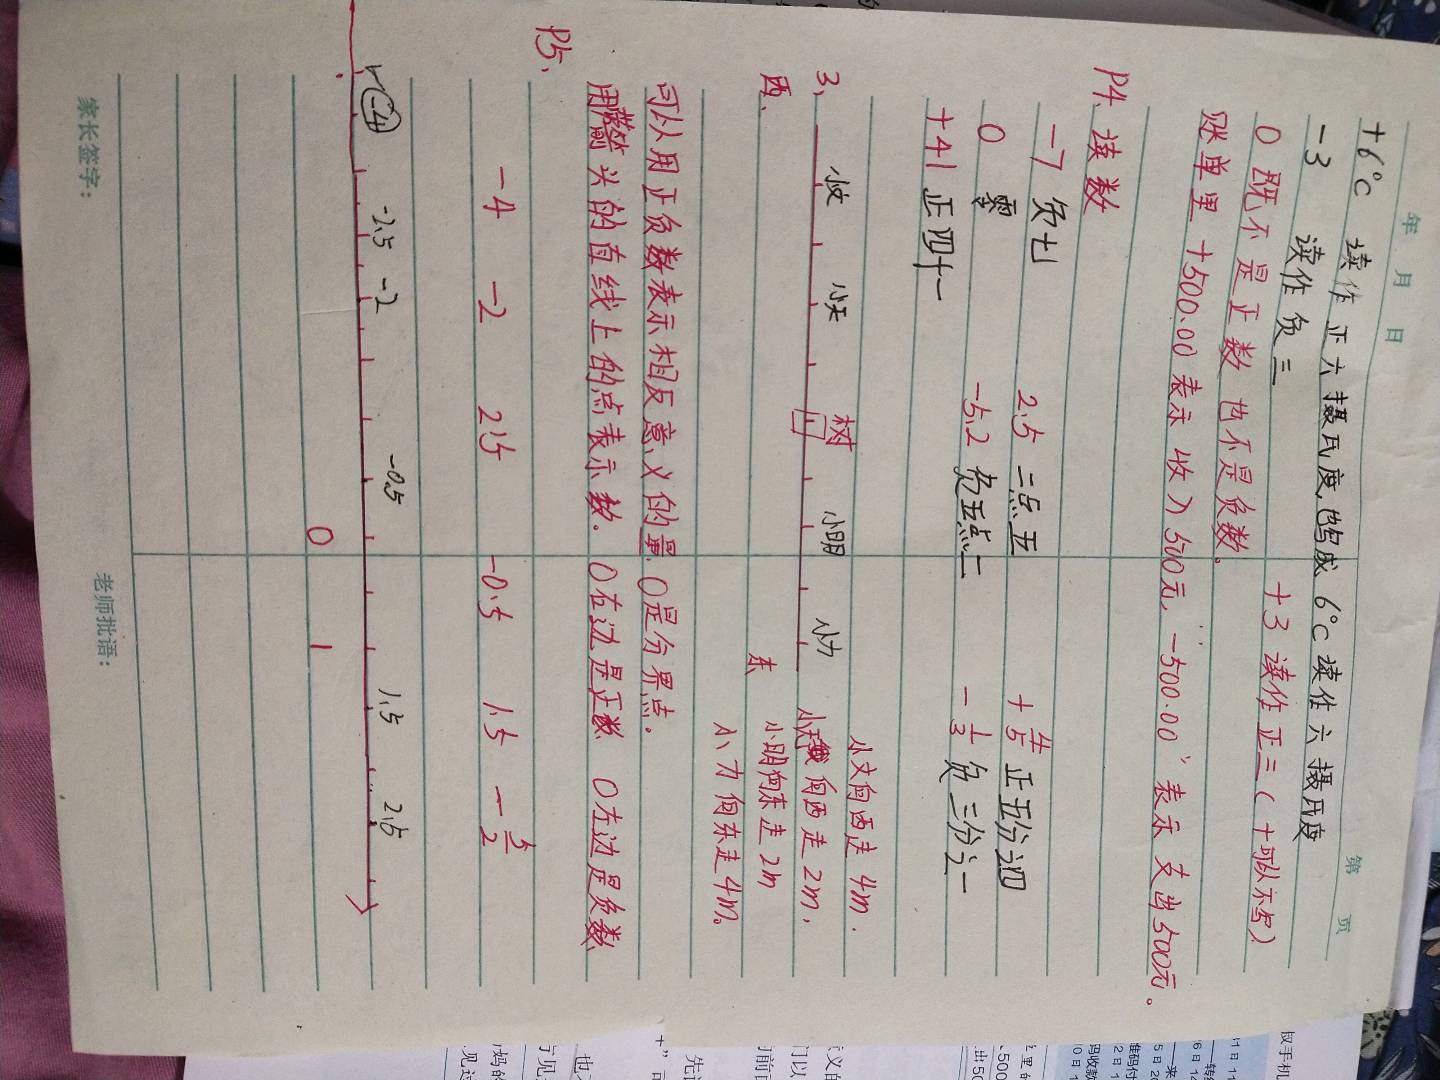 年 月 日
第 页
+6℃ 读作 正六摄氏度,也写成 6℃ 读作六摄氏度
-3 读作负三 +3 读作正三(+可以不写)
0 既不是正数也不是负数。
账单里 +500.00 表示收入500元, -500.00 表示支出500元。
P4、读数
-7 负七 2.5 二点五 +4/5 正五分之四
0 零 -5.2 负五点二 -1/3 负三分之一
+41 正四十一
3、
小文 小天 树 小明 小力
西、 东
小文向西走4m.
小天向西走2m,
小明向东走2m
小力向东走4m。
可以用正负数表示相反意义的量. 0是分界点.
P5、
用带箭头的直线上的点表示数. 0右边是正数 0左边是负数
-4 -2 2.5 -0.5 1.5 -5/2
-4 -2.5 -2 -0.5 1.5 2.5
0 1
家长签字: 老师批语: